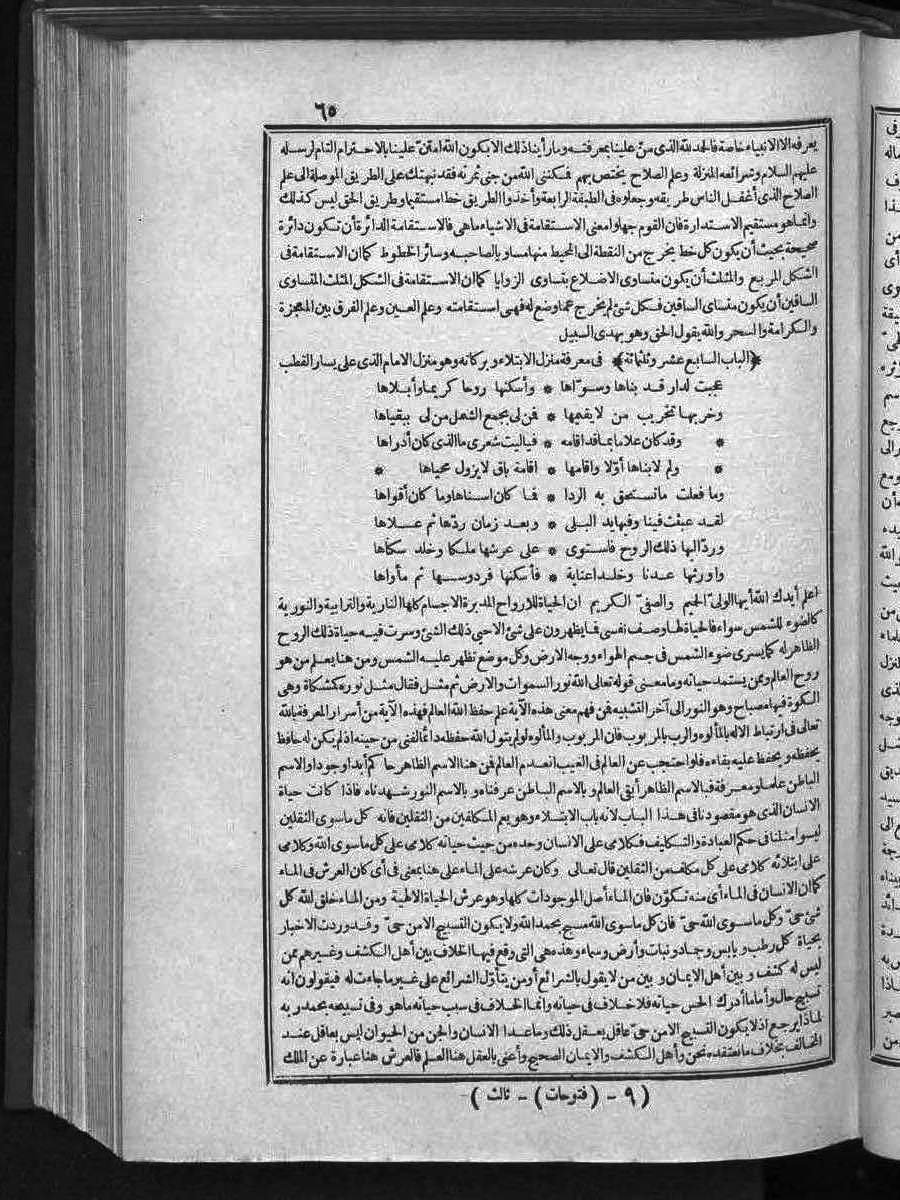 ٦٥
يعرفه الا الانبياء خاصة فالحمد لله الذى منّ علينا بمعرفته وما رأينا ذلك الا لكون الله امتنّ علينا بالاحترام التام لرسله
عليهم السلام وشرائعه المنزلة وعلم الصلاح يختص بهم فكنى الله من جنى ثمرته فقد نبهتك على الطريق الموصلة الى علم
الصلاح الذى أغفل الناس طريقه وجعلوه فى الطبقة الرابعة وأخذوا الطريق خطا مستقيما وطريق الحق ليس كذلك
وانما هو مستقيم الاستدارة فان القوم جهلوا معنى الاستقامة فى الاشياء ما هى فالاستقامة الدائرة أن تكون دائرة
صحيحة بحيث أن يكون كل خط يخرج من النقطة الى المحيط منها مساويا لصاحبه وسائر الخطوط كما ان الاستقامة فى
الشكل المربع والمثلث أن يكون متساوى الاضلاع بتساوى الزوايا كما ان الاستقامة فى الشكل المثلث المتساوى
الساقين أن يكون متساى الساقين فكل شئ لم يخرج عما وضع له فهى استقامته وعلم العين وعلم الفرق بين المعجزة
والكرامة والسحر والله يقول الحق وهو يهدى السبيل
﴿الباب السابع عشر وثلثمائة﴾ فى معرفة منزل الابتلاء وبركاته وهو منزل الامام الذى على يسار القطب
عجبت لدار قد بناها وسوّاها * وأسكنها روحا كريما وأبلاها
وخربها تخريب من لا يقيمها * فمن لى بجمع الشمل من لى ببقياها
* وقد كان علاما بما قد أقامه * فياليت شعرى ما الذى كان أدراها
* ولم لا بناها أوّلا وأقامها * اقامة باق لا يزول محياها *
وما فعلت ما تستحق به الردا * فما كان اسناها وما كان أقواها
لقد عبثت فينا وفيها يد البلى * وبعد زمان ردّها ثم علاها
وردّ اليها ذلك الروح فاستوى * على عرشها ملكا وخلد سكناها
واورثها عدنا وخلدا عناية * فأسكنها فردوسها ثم مأواها
اعلم أيدك الله أيها الولىّ الحميم والصفىّ الكريم ان الحياة للارواح المدبرة الاجسام كلها النارية والترابية والنورية
كالضوء للشمس سواء فالحياة لها وصف نفسى فما يظهرون على شئ الا حيى ذلك الشئ وسرت فيه حياة ذلك الروح
الظاهر له كما يسرى ضوء الشمس فى جسم الهواء ووجه الارض وكل موضع تظهر عليه الشمس ومن هنا يعلم من هو
روح العالم وممن يستمد حياته وما معنى قوله تعالى الله نور السموات والارض ثم مثل فقال مثل نوره كمشكاة وهى
الكوة فيها مصباح وهو النور الى آخر التشبيه فمن فهم معنى هذه الآية علم حفظ الله العالم فهذه الآية من أسرار المعرفة بالله
تعالى فى ارتباط الاله بالمألوه والرب بالمربوب فان المربوب والمألوه لو لم يتول الله حفظه دائما لفنى من حينه اذ لم يكن له حافظ
يحفظه ويحفظ عليه بقاءه فلو احتجب عن العالم فى الغيب انعدم العالم فمن هنا الاسم الظاهر حاكم أبدا وجودا والاسم
الباطن علما ومعرفة فبالاسم الظاهر أبقى العالم وبالاسم الباطن عرفناه وبالاسم النور شهدناه فاذا كانت حياة
الانسان الذى هو مقصودنا فى هذا الباب لانه باب الابتلاء وهو يعم المكلفين من الثقلين فانه كل ما سوى الثقلين
ليسوا مثلنا فى حكم العبادة والتكليف فكلامى على الانسان وحده من حيث حياته كلامى على كل ما سوى الله وكلامى
على ابتلائه كلامى على كل مكلف من الثقلين قال تعالى وكان عرشه على الماء على هنا بمعنى فى أى كان العرش فى الماء
كما ان الانسان فى الماء أى منه تكوّن فان الماء أصل الموجودات كلها وهو عرش الحياة الالهية ومن الماء خلق الله كل
شئ حىّ وكل ما سوى الله حىّ فان كل ما سوى الله مسبح بحمد الله ولا يكون التسبيح الا من حىّ وقد وردت الاخبار
بحياة كل رطب ويابس وجماد ونبات وأرض وسماء وهذه هى التى وقع فيها الخلاف بين أهل الكشف وغيرهم ممن
ليس له كشف وبين أهل الايمان وبين من لا يقول بالشرائع أو من يتأوّل الشرائع على غير ما جاءت له فيقولون انه
تسبيح حال وأما ما أدرك الحس حياته فلا خلاف فى حياته وانما الخلاف فى سبب حياته ما هو وفى تسبيحه بحمد ربه
لماذا يرجع اذ لا يكون التسبيح الا من حىّ عاقل يعقل ذلك وما عدا الانسان والجن من الحيوان ليس بعاقل عند
المخالف بخلاف ما نعتقده نحن وأهل الكشف والايمان الصحيح وأعنى بالعقل هنا العلم فالعرش هنا عبارة عن الملك
(٩ - (فتوحات) - ثالث)